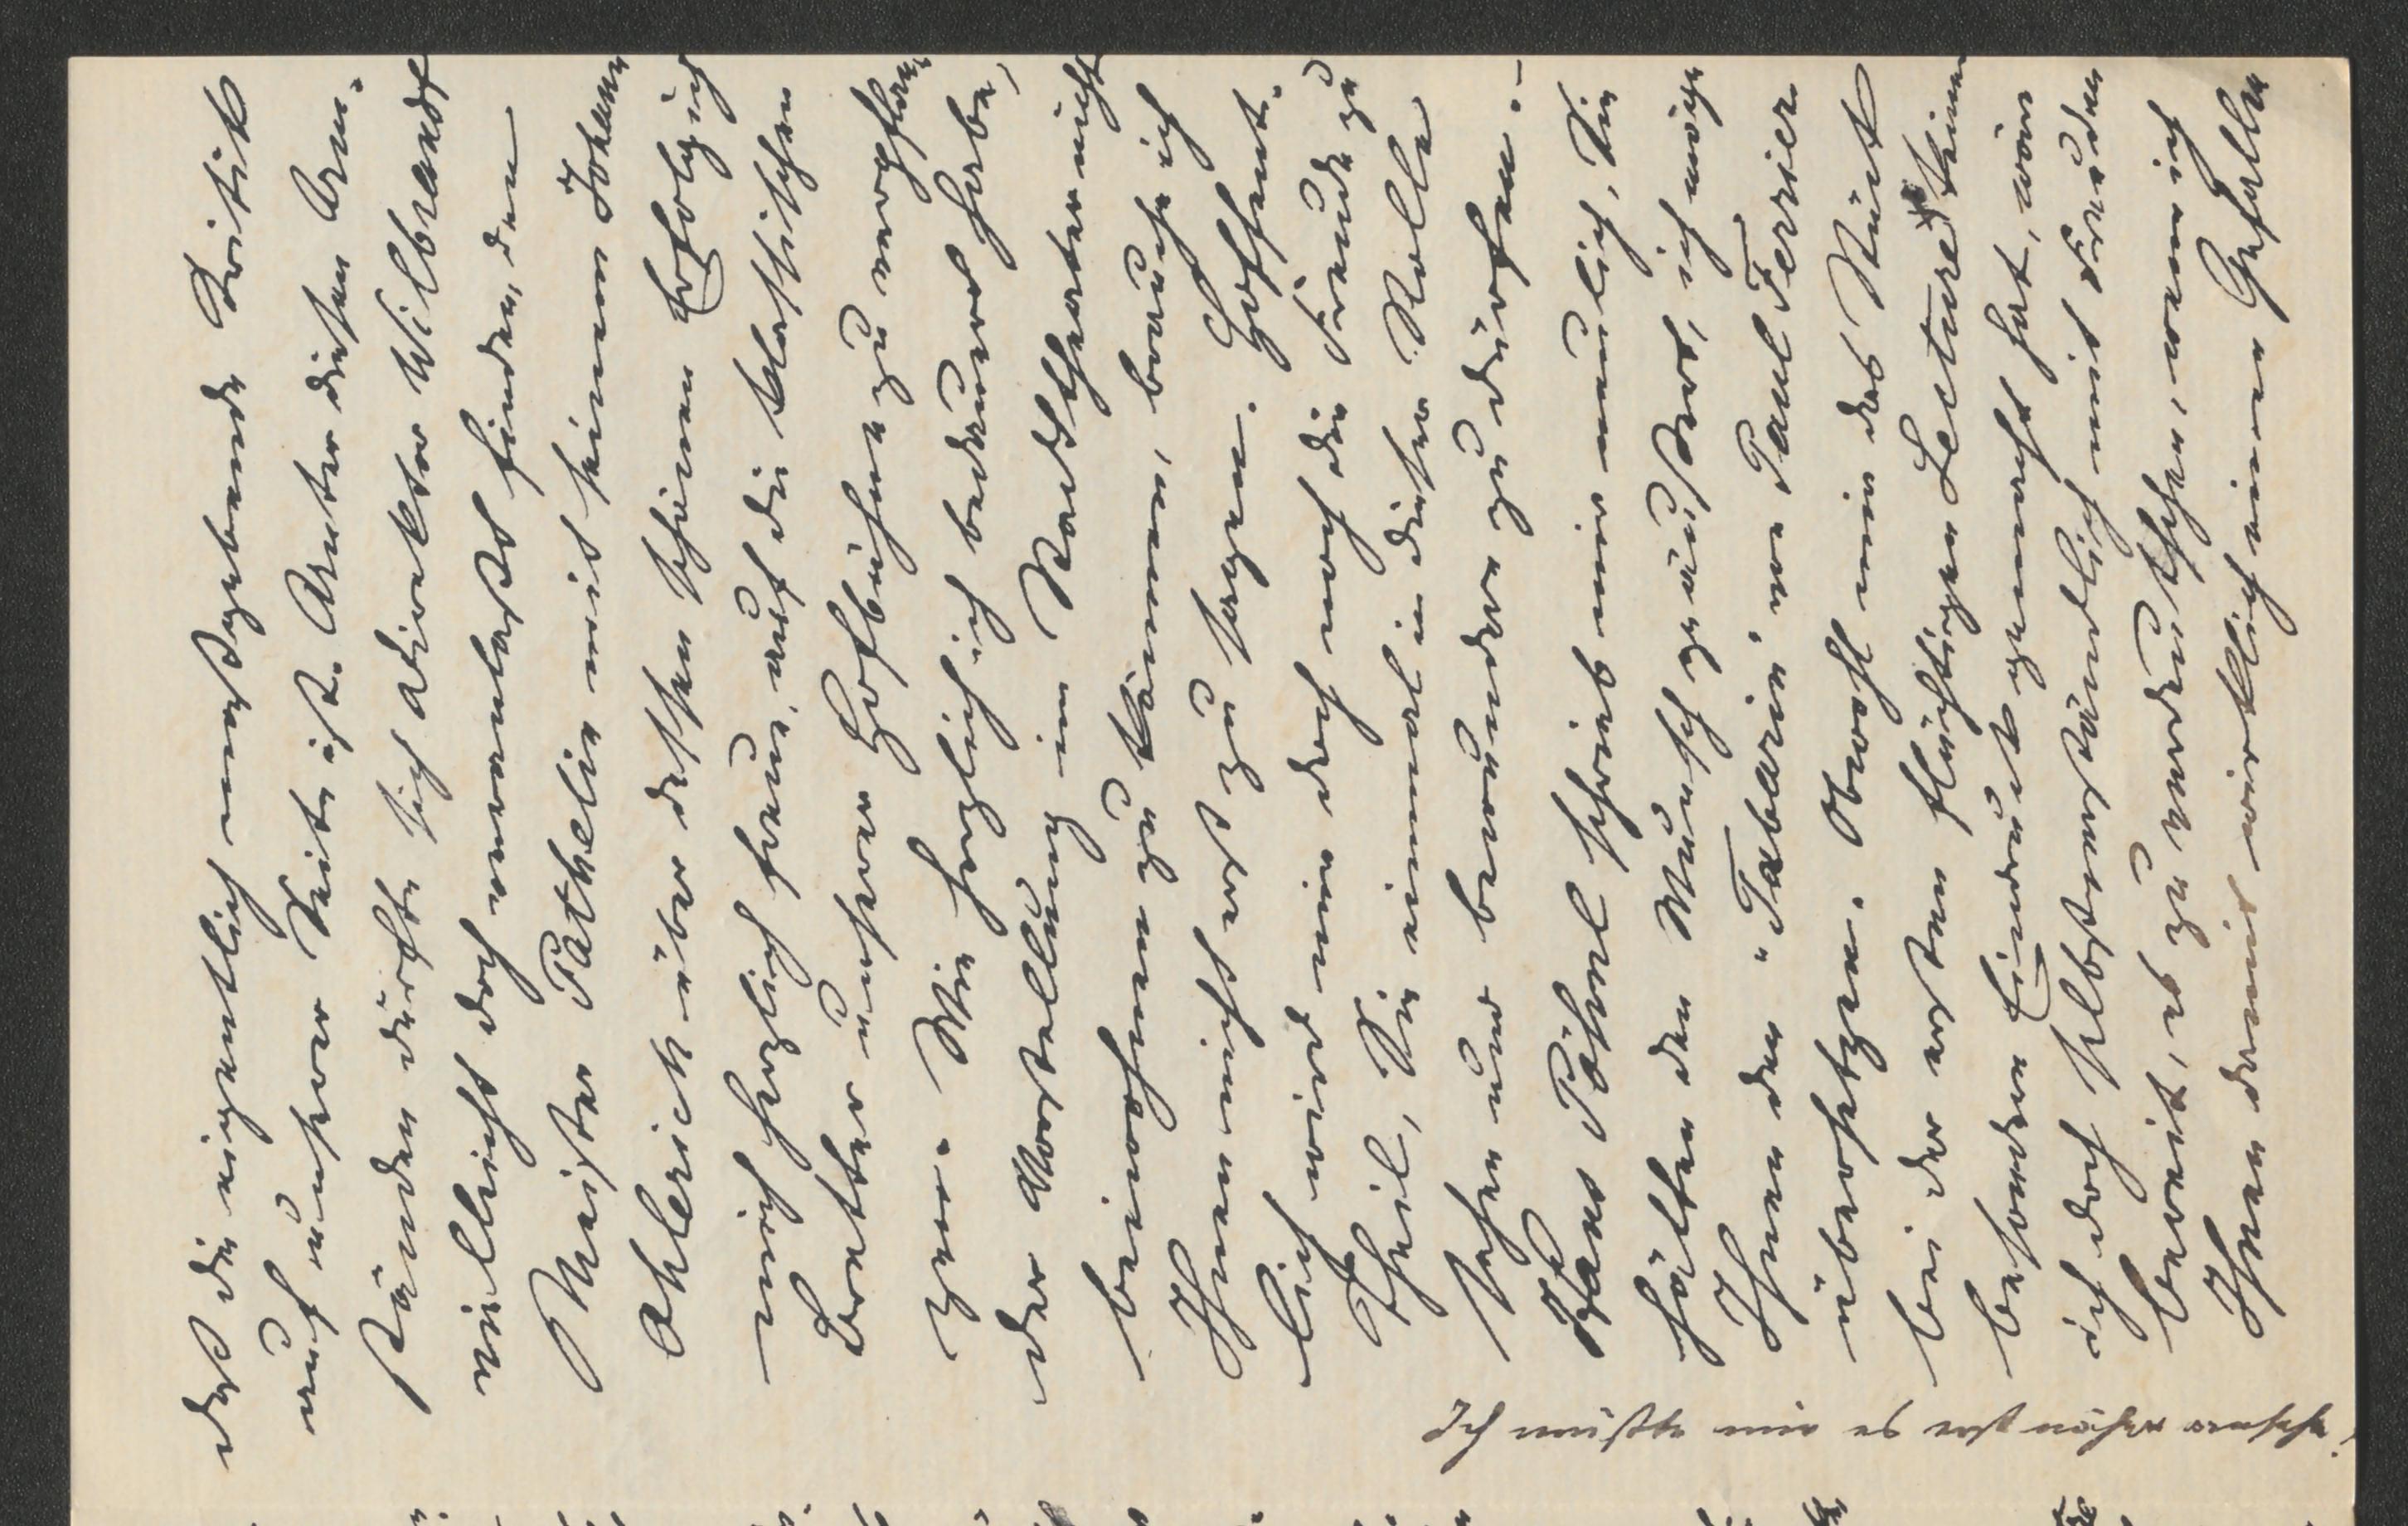 daß die eigentlich maßgebende Kritik
auf unserer Seite ist. Unter diesen Um-
ständen dürfte sich Direktor Wilbrandt
vielleicht doch veranlaßt finden, den
Meister Pathelin mit seinem Johann
Ohlerich über dessen schönen Erfolg ich
mich herzlich freue, auf die klassischen
Bretter unserer Hofbühne zu verpflan-
zen. Wie herzlich ich bedauert habe,
der Vorstellung im Stadttheater nicht
beiwohnen zu können, brauche ich
Ihnen nicht erst zu sagen. Hoffent-
lich wird mir doch noch die Freude zu
Theil, Sie einmal in dieser Rolle
sehen und bewundern zu dürfen. –
Hans Pöhnl schrieb mir neulich, Sie
hätten den Wunsch geäußert, ich möge
Ihnen den „Tabarin" von Paul Ferrier
übersetzen. Obwohl mir das Stück
bei der ersten flüchtigen Lecture keinen
besonderen Eindruck gemacht hat, wäre
ich doch selbstverständlich mit Freuden
bereit, es zu verdeutschen, wenn ich
Ihnen damit wirklich einen Gefallen
Ich müßte mir es erst näher ansehen!